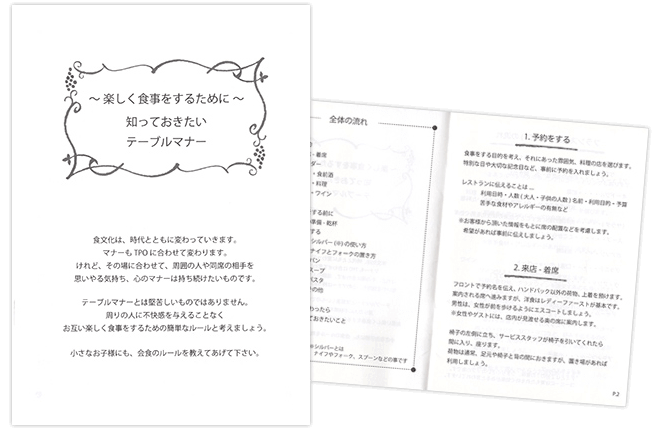 ～ 楽しく食事をするために ～
知っておきたい
テーブルマナー
食文化は、時代とともに変わっていきます。
マナーも TPO に合わせて変わります。
けれど、その場に合わせて、周囲の人や同席の相手を
思いやる気持ち、心のマナーは持ち続けたいものです。
テーブルマナーとは堅苦しいものではありません。
周りの人に不快感を与えることなく
お互い楽しく食事をするための簡単なルールと考えましょう。
小さなお子様にも、会食のルールを教えてあげて下さい。
全体の流れ
・着席
ダー
・食前酒
・料理
・ワイン
する前に
準備 - 乾杯
シルバー (※) の使い方
ナイフとフォークの置き方
パン
スープ
パスタ
の他
わったら
ておきたいこと
※シルバーとは
ナイフやフォーク、スプーンなどの事です
1. 予約をする
食事をする目的を考え、それにあった雰囲気、料理の店を選びます。
特別な日や大切な記念日など、事前に予約を入れましょう。
レストランに伝えることは ...
利用日時・人数 ( 大人・子供の人数 ) 名前・利用目的・予算
苦手な食材やアレルギーの有無など
※お客様から頂いた情報をもとに席の配置などを考慮します。
希望があれば事前に伝えしましょう。
2. 来店 - 着席
フロントで予約名を伝え、ハンドバック以外の荷物、上着を預けます。
案内される席へ進みますが、洋食はレディーファーストが基本です。
男性は、女性が前を歩けるようにエスコートしましょう。
※女性やゲストには、店内が見渡せる奥の席に案内します。
椅子の左側に立ち、サービススタッフが椅子を引いてくれたら
間に入り、座ります。
荷物は通常、足元や椅子と背の間におきますが、置き場があれば
利用しましょう。
P.2